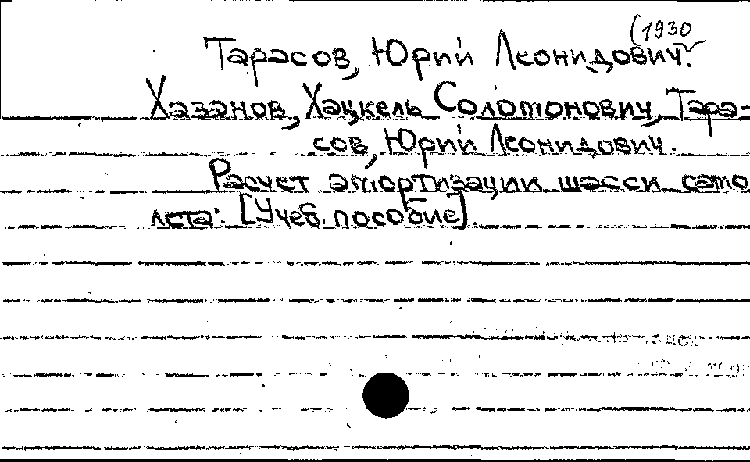 (1930
Тарасов, Юрий Леонидович.
Хазанов, Хацкель Соломонович, Тара-
сов, Юрий Леонидович.
Расчет амортизации шасси само
лета: [Учеб. пособие].